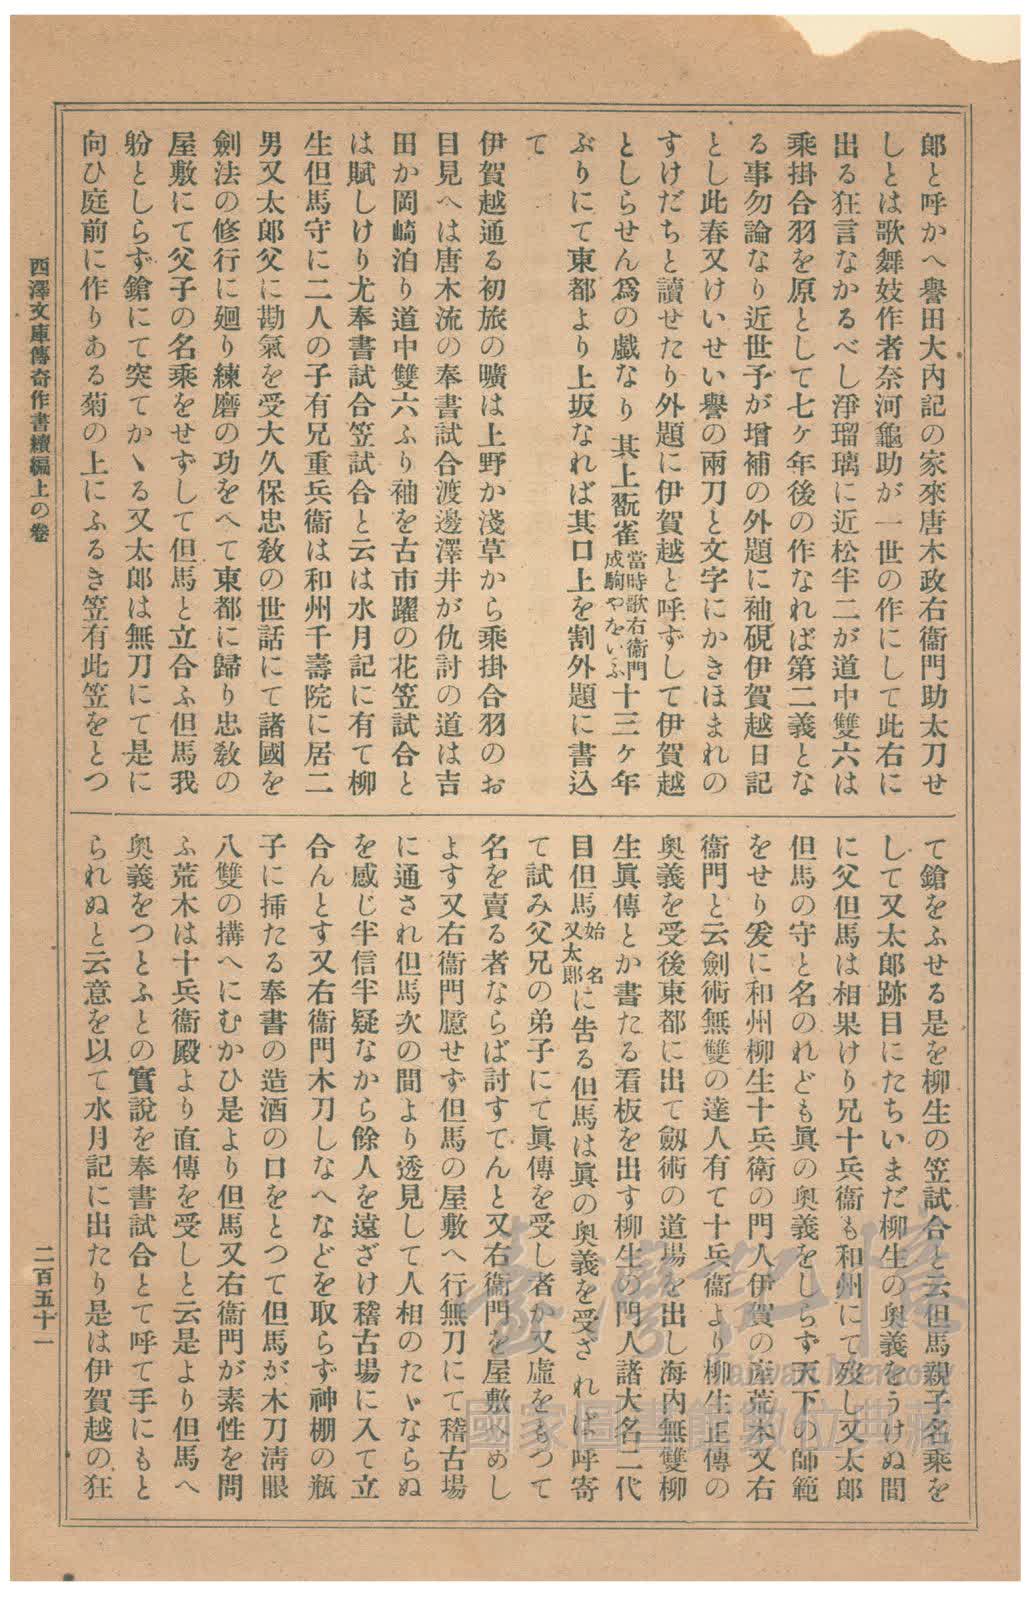 郎と呼かへ譽田大內記の家來唐木政右衞門助太刀せ
しとは歌舞妓作者奈河龜助が一世の作にして此右に
出る狂言なかるべし淨瑠璃に近松半二が道中雙六は
乘掛合羽を原として七ケ年後の作なれば第二義とな
る事勿論なり近世予が增補の外題に袖硯伊賀越日記
とし此春又けいせい譽の兩刀と文字にかきほまれの
すけだちと讀せたり外題に伊賀越と呼ずして伊賀越
としらせん爲の戲なり其上翫雀當時歌右衞門成駒やをいふ十三ケ年
ぶりにて東都より上坂なれば其口上を割外題に書込
て
伊賀越通る初旅の曠は上野か淺草から乘掛合羽のお
目見へは唐木流の奉書試合渡邊澤井が仇討の道は吉
田か岡崎泊り道中雙六ふり袖を古市躍の花笠試合と
は賦しけり尤奉書試合笠試合と云は水月記に有て柳
生但馬守に二人の子有兄重兵衞は和州千壽院に居二
男又太郎父に勘氣を受大久保忠敎の世話にて諸國を
劍法の修行に廻り練磨の功をへて東都に歸り忠敎の
屋敷にて父子の名乘をせずして但馬と立合ふ但馬我
躮としらず鎗にて突てかゝる又太郎は無刀にて是に
向ひ庭前に作りある菊の上にふるき笠有此笠をとつ
て鎗をふせる是を柳生の笠試合と云但馬親子名乘を
して又太郎跡目にたちいまだ柳生の奧義をうけぬ間
に父但馬は相果けり兄十兵衞も和州にて歿し又太郎
但馬の守と名のれども眞の奧義をしらず天下の師範
をせり爰に和州柳生十兵衛の門人伊賀の產荒木又右
衞門と云劍術無雙の達人有て十兵衞より柳生正傳の
奧義を受後東都に出て劔術の道場を出し海內無雙柳
生眞傳とか書たる看板を出す柳生の門人諸大名二代
目但馬始名又太郎に吿る但馬は眞の奧義を受ざれば呼寄
て試み父兄の弟子にて眞傳を受し者か又虛をもつて
名を賣る者ならば討すてんと又右衞門を屋敷へめし
よす又右衞門臆せず但馬の屋敷へ行無刀にて稽古場
に通され但馬次の間より透見して人相のたゞならぬ
を感じ半信半疑なから餘人を遠ざけ稽古場に入て立
合んとす又右衞門木刀しなへなどを取らず神棚の瓶
子に揷たる奉書の造酒の口をとつて但馬が木刀淸眼
八雙の搆へにむかひ是より但馬又右衞門が素性を問
ふ荒木は十兵衞殿より直傳を受しと云是より但馬へ
奧義をつとふとの實說を奉書試合とて呼て手にもと
られぬと云意を以て水月記に出たり是は伊賀越の狂
西澤文庫傳奇作書續編上の卷
二百五十一
臺灣記憶
Taiwan Memory
國家圖書館數位典藏